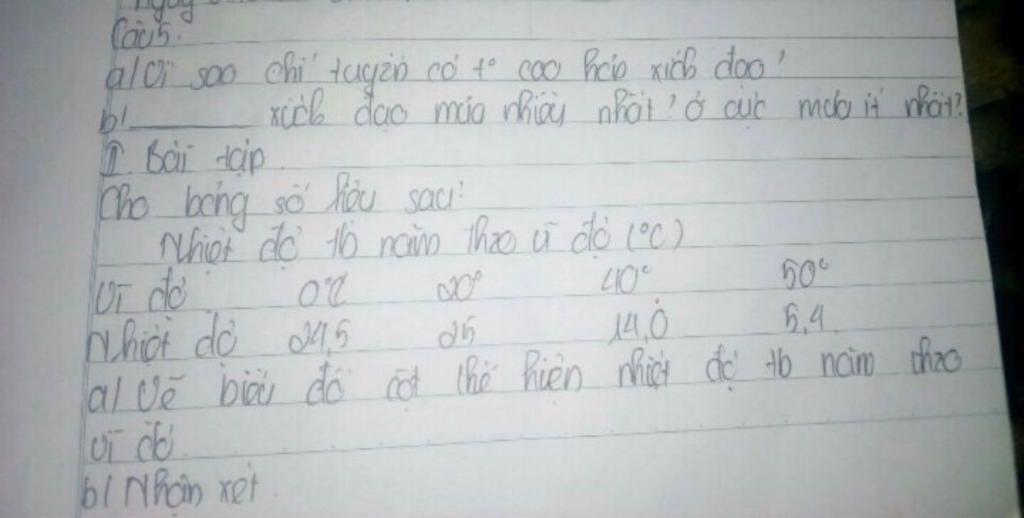 ngày
Câu 5.
a/ Vì sao chí tuyến có t° cao hơn xích đạo?
b/ ______ xích đạo mưa nhiều nhất? ở cực mưa ít nhất?
II. Bài tập
Cho bảng số liệu sau:
Nhiệt độ tb năm theo vĩ độ (°C)
Vĩ độ 0°C 20° 40° 50°
Nhiệt độ 24,5 25 14,0 5,4
a/ Vẽ biểu đồ cột thể hiện nhiệt độ tb năm theo
vĩ độ
b/ Nhận xét.